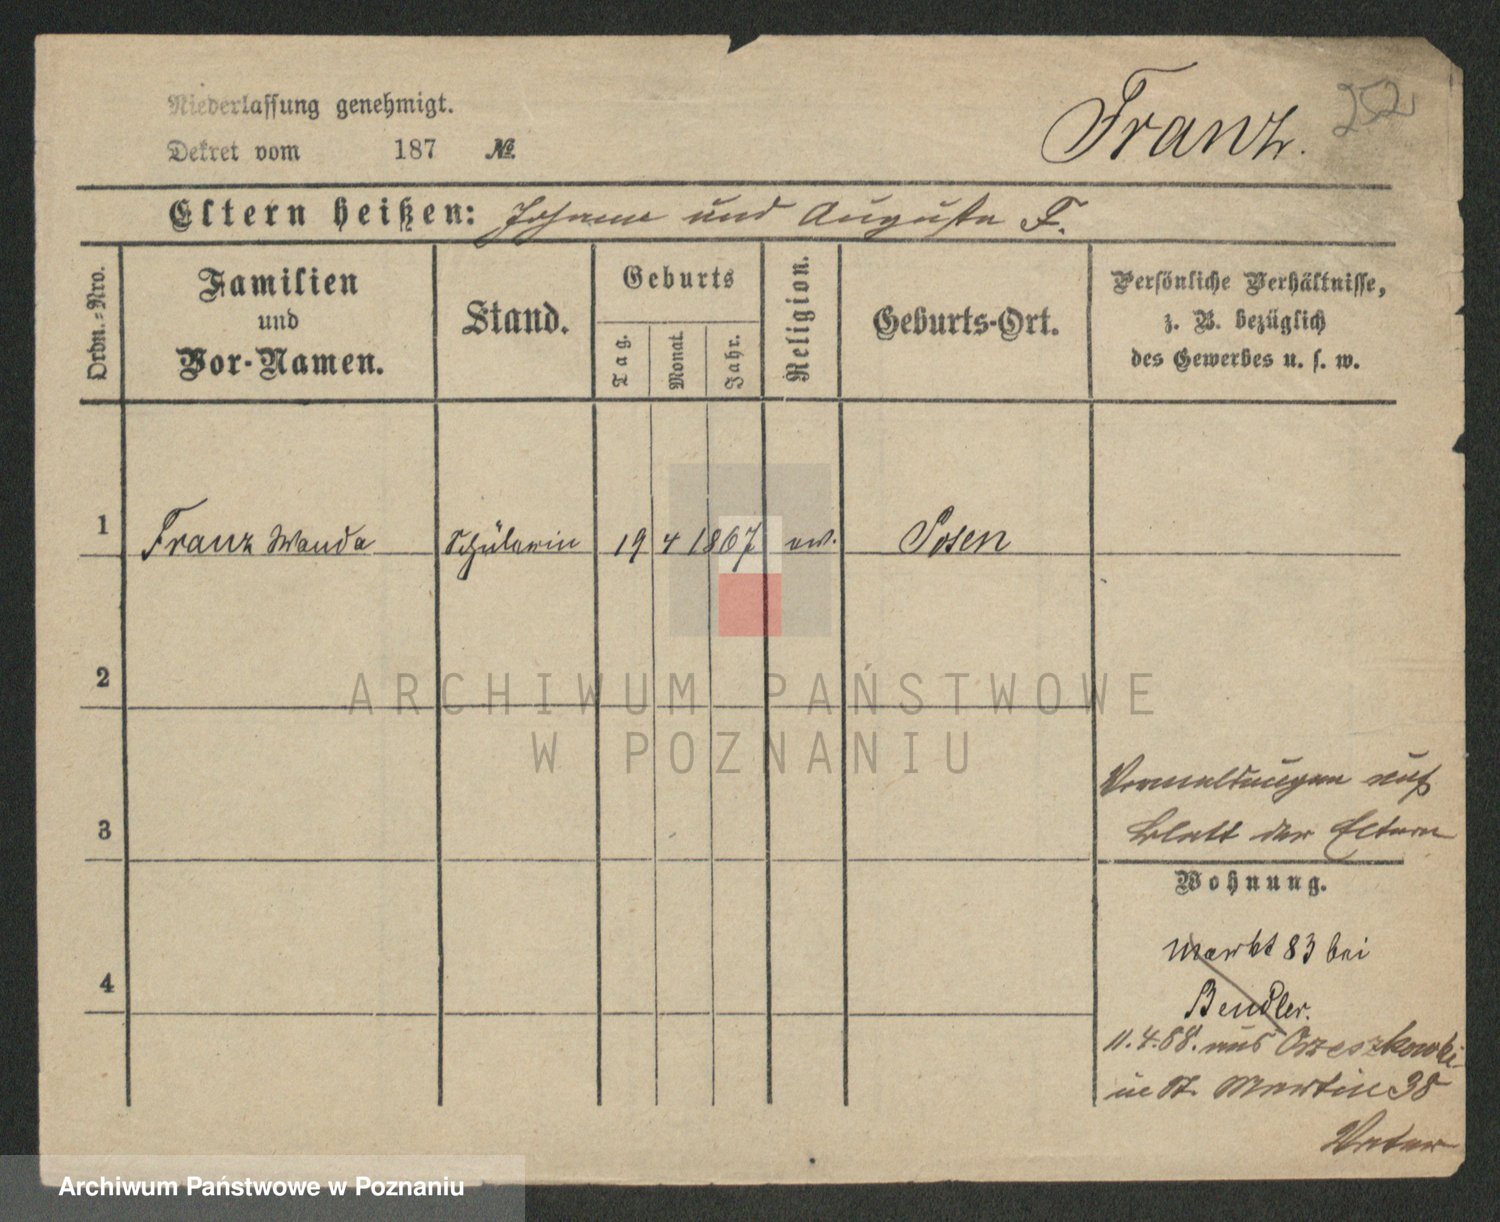 Niederlassung genehmigt.
Dekret vom 187 №
Franz.
252
Eltern heißen: Johann und Auguste F.
Ordn.-Nro.
Familien
und
Vor-Namen.
Stand.
Geburts
Tag.
Monat.
Jahr.
Religion.
Geburts-Ort.
Persönliche Verhältnisse,
z. B. bezüglich
des Gewerbes u. s. w.
1 Franz Wanda Schülerin 19 4 1867 ev. Posen
2
3
auf
Blatt der Eltern
Wohnung.
Markt 83 bei
Bendler.
4
11.4.88. aus Orzeszkowki
in St. Martin 38
Vater
ARCHIWUM PAŃSTWOWE
W POZNANIU
Archiwum Państwowe w Poznaniu